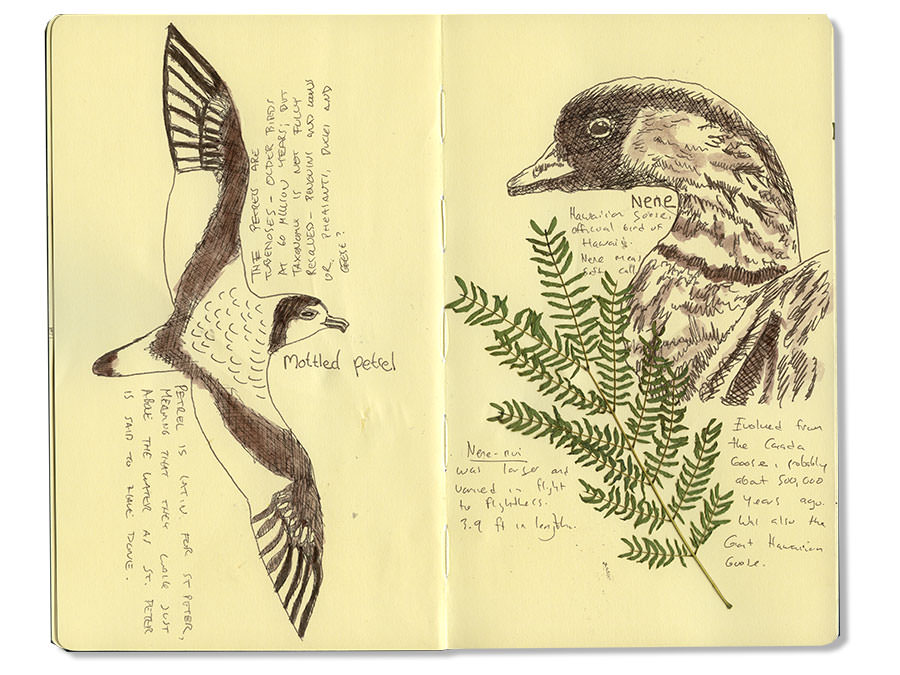 THE PETRELS ARE
TUBENOSES - OLDER BIRDS
AT 60 MILLION YEARS; BUT
TAXONOMY IS NOT FULLY
RESOLVED - PENGUINS AND LOONS
OR PHEASANTS, DUCKS AND
GEESE?
Mottled petrel
PETREL IS LATIN FOR ST PETER,
MEANING THAT THEY WALK JUST
ABOVE THE WATER AS ST. PETER
IS SAID TO HAVE DONE.
Nene
Hawaiian Goose,
official bird of
Hawaii.
Nene
soft call
Nene-nui
was larger and
varied in flight
to flightless.
3.9 ft in length.
Evolved from
the Canada
Goose, probably
about 500,000
years ago.
Was also the
Giant Hawaiian
Goose.